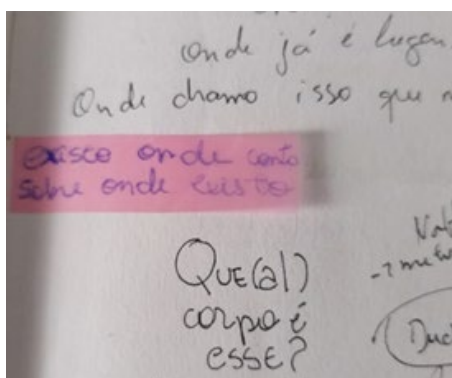 onde já é lugar
Onde chamo isso que
onde conto
sobre onde existo
QUE(al)
corpo é
esse?